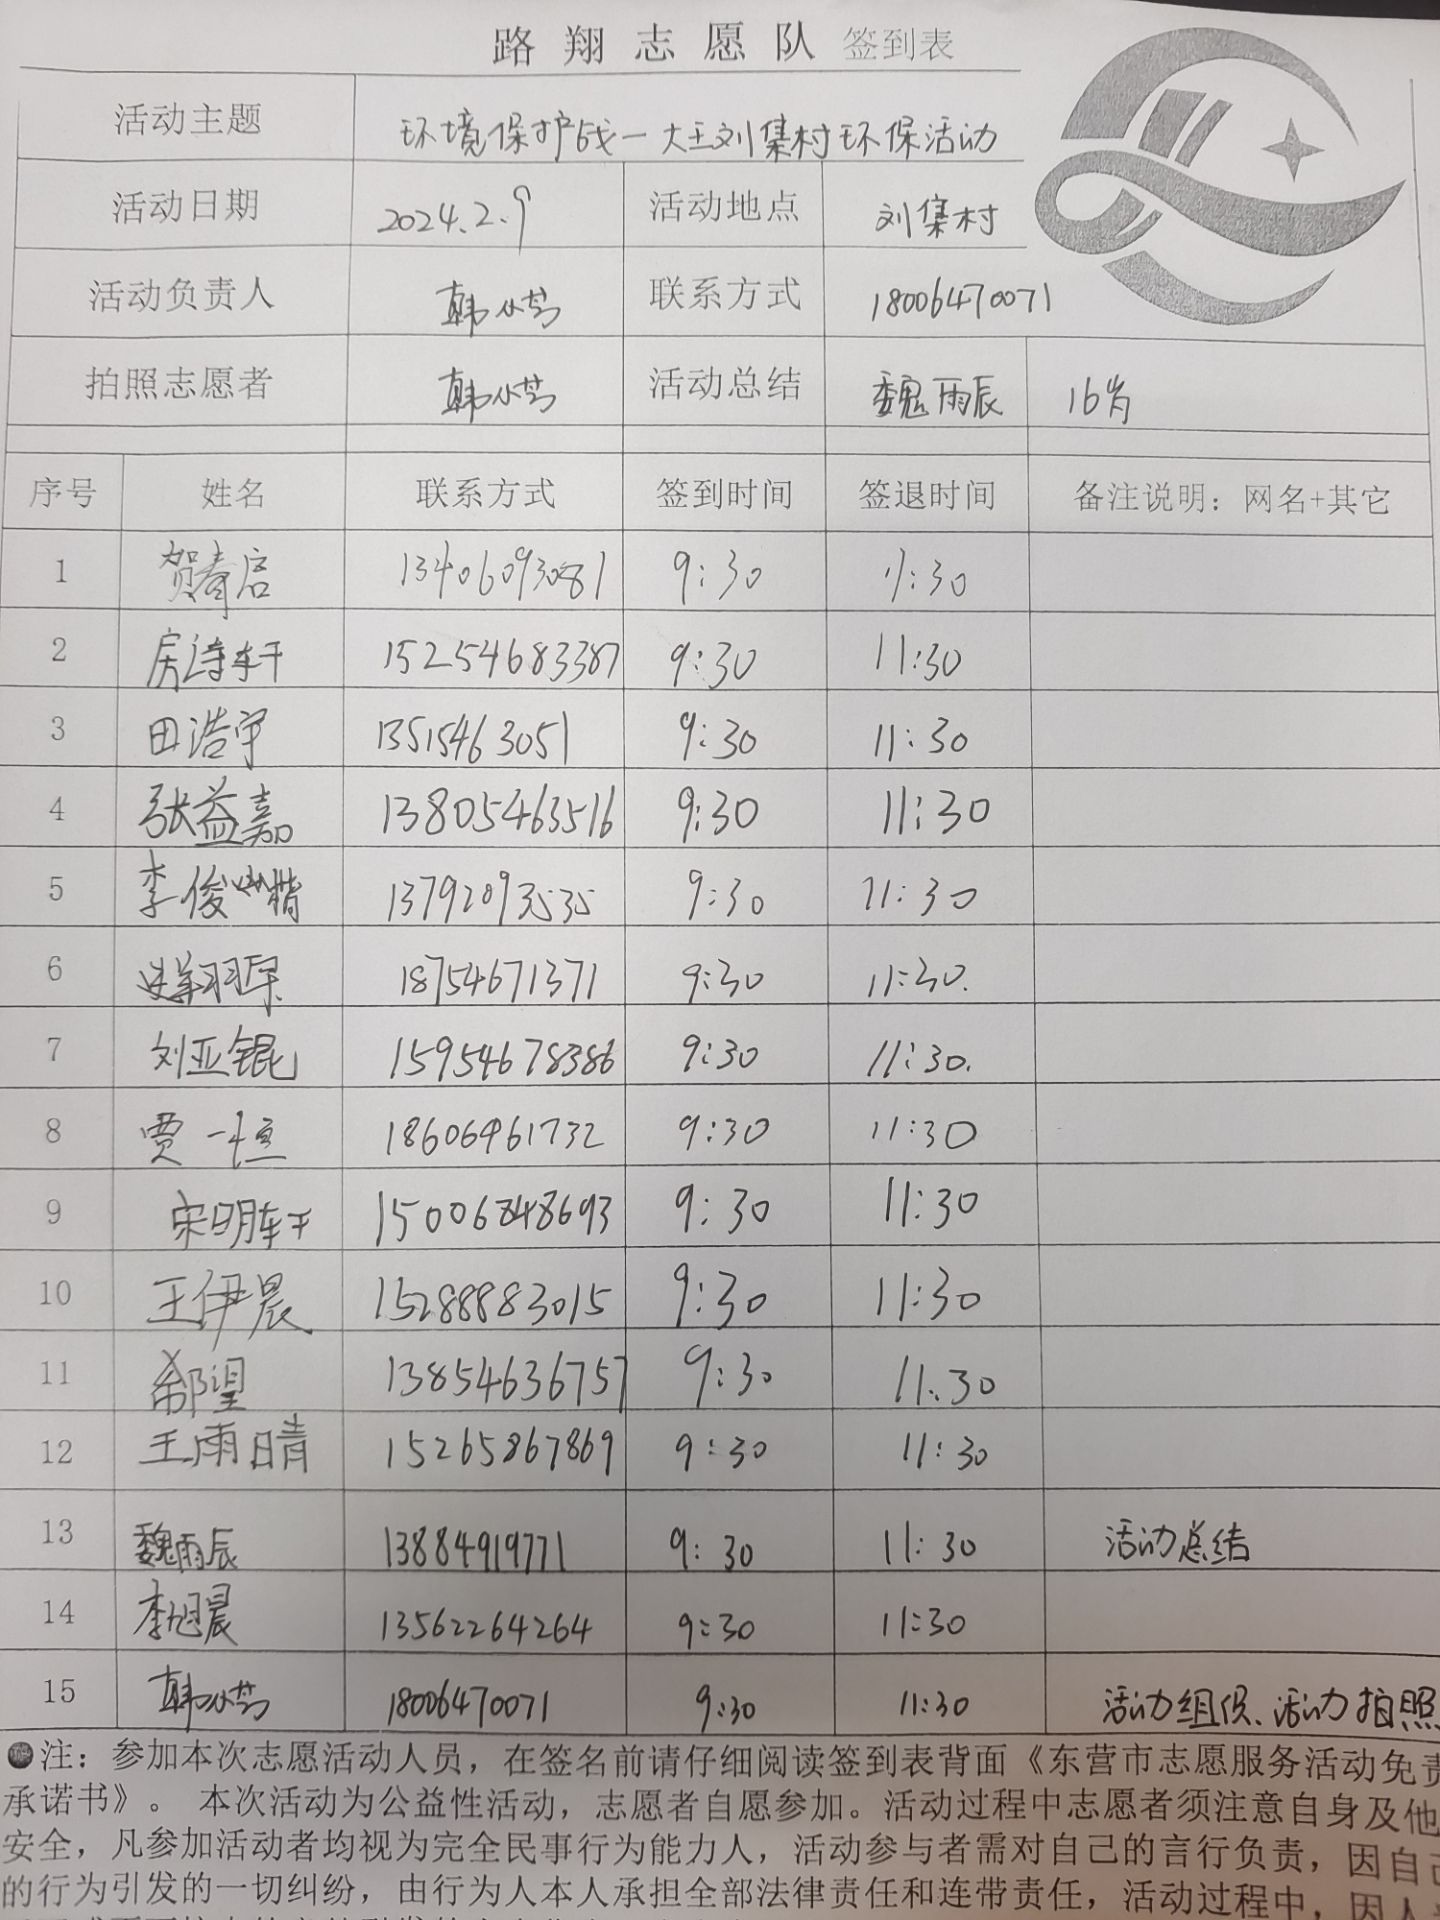 路翔志愿队 签到表
活动主题 环境保护战一大王刘集村环保活动
活动日期 2024.2.9 活动地点 刘集村
活动负责人 韩 联系方式 18006470071
拍照志愿者 韩 活动总结 魏雨辰 16岁
序号 姓名 联系方式 签到时间 签退时间 备注说明：网名+其它
1 贺春启 13406093081 9:30 11:30
2 房诗轩 15254683387 9:30 11:30
3 田浩宇 13515463051 9:30 11:30
4 张益嘉 13805463516 9:30 11:30
5 李俊楷 13792093535 9:30 11:30
6 18754671371 9:30 11:30.
7 刘亚锟 15954678386 9:30 11:30.
8 贾一恒 18606461732 9:30 11:30
9 宋明轩 15006848693 9:30 11:30
10 王伊晨 15288883015 9:30 11:30
11 郗望 13854636757 9:30 11:30
12 王雨晴 15265867869 9:30 11:30
13 魏雨辰 13884919771 9:30 11:30 活动总结
14 李旭晨 13562264264 9:30 11:30
15 韩 18006470071 9:30 11:30 活动组织、活动拍照
注：参加本次志愿活动人员，在签名前请仔细阅读签到表背面《东营市志愿服务活动免责
承诺书》。 本次活动为公益性活动，志愿者自愿参加。活动过程中志愿者须注意自身及他
安全，凡参加活动者均视为完全民事行为能力人，活动参与者需对自己的言行负责，因自己
的行为引发的一切纠纷，由行为人本人承担全部法律责任和连带责任，活动过程中，因人